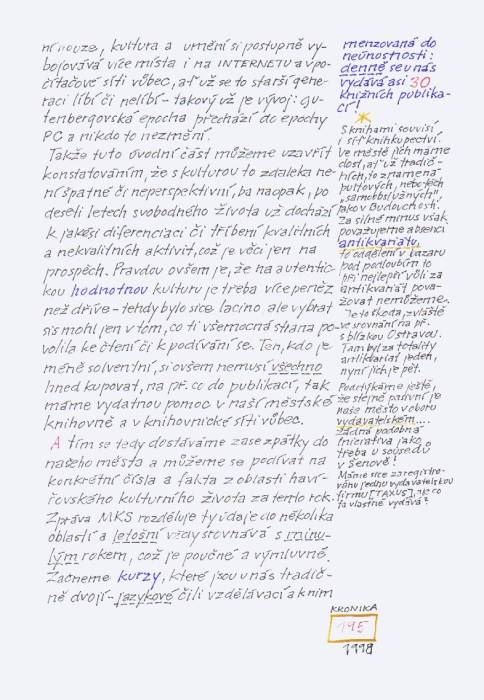 ní nouze, kultura a umění si postupně vy-
bojovává více místa i na INTERNETU a v po-
čítačové síti vůbec, ať už se to starší gene-
raci líbí či nelíbí - takový už je vývoj: gu-
tenbergovská epocha přechází do epochy
PC a nikdo to nezmění.
Takže tuto úvodní část můžeme uzavřít
konstatováním, že s kulturou to zdaleka ne-
ní špatné či neperspektivní, ba naopak, po
deseti letech svobodného života už dochází
k jakési diferenciaci či tříbení kvalitních
a nekvalitních aktivit, což je věci jen na
prospěch. Pravdou ovšem je, že na autentic-
kou hodnotnou kulturu je třeba více peněz
než dříve - tehdy bylo sice lacino ale vybrat
sis mohl jen v tom, co ti všemocná strana po-
volila ke čtení či k podívání se. Ten, kdo je
méně solventní, si ovšem nemusí všechno
hned kupovat, na př. co do publikací, tak
máme vydatnou pomoc v naší městské
knihovně a v knihovnické síti vůbec.
A tím se tedy dostáváme zase zpátky do
našeho města a můžeme se podívat na
konkrétní čísla a fakta z oblasti haví-
řovského kulturního života za tento rok.
Zpráva MKS rozděluje ty údaje do několika
oblastí a letošní vždy srovnává s minu-
lým rokem, což je poučné a výmluvné.
Začneme kurzy, které jsou u nás tradič-
ně dvojí - jazykové čili vzdělávací a k nim
menzovaná do
neúnosnosti:
denně se u nás
vydává asi 30
knižních publika-
cí!
S knihami souvisí
i síť knihkupectví.
Ve městě jich máme
dost, ať už tradič-
ních, to znamená
pultových, nebo těch
"samoobslužných",
jako v Budoucnosti.
Za silné minus však
považujeme absenci
antikvariátu,
to oddělení v bazaru
pod podloubím to
při nejlepší vůli za
antikvariát pova-
žovat nemůžeme.
Je to škoda, zvláště
ve srovnání na př.
s blízkou Ostravou.
Tam byl za totality
antikvariát jeden,
nyní jich je pět.
Podtýkáme ještě,
že stejně pasivní je
naše město v oboru
vydavatelském...
žádná podobná
iniciativa jako
třeba u sousedů
v Šenově!
Máme sice zaregistro-
vánu jednu vydavatelskou
firmu [TAXUS], ale co
ta vlastně vydává?
KRONIKA
195
1998